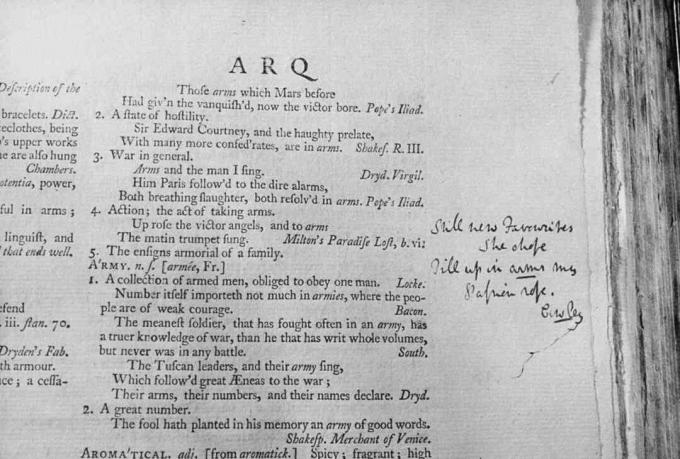 ARQ
Description of the
bracelets. Dict.
eclothes, being
's upper works
ne are also hung
Chambers.
otentia, power,
ful in arms;
linguist, and
that ends well.
efend
. iii. stan. 70.
Dryden's Fab.
th armour.
ce; a cessa-
Those arms which Mars before
Had giv'n the vanquish'd, now the victor bore. Pope's Iliad.
2. A state of hostility.
Sir Edward Courtney, and the haughty prelate,
With many more confed'rates, are in arms. Shakes. R. III.
3. War in general.
Arms and the man I sing. Dryd. Virgil.
Him Paris follow'd to the dire alarms,
Both breathing slaughter, both resolv'd in arms. Pope's Iliad.
4. Action; the act of taking arms.
Up rose the victor angels, and to arms
The matin trumpet sung. Milton's Paradise Lost, b. vi:
5. The ensigns armorial of a family.
A'RMY. n. s. [armée, Fr.]
1. A collection of armed men, obliged to obey one man. Locke.
Number itself importeth not much in armies, where the peo-
ple are of weak courage. Bacon.
The meanest soldier, that has fought often in an army, has
a truer knowledge of war, than he that has writ whole volumes,
but never was in any battle. South.
The Tuscan leaders, and their army sing,
Which follow'd great Æneas to the war;
Their arms, their numbers, and their names declare. Dryd.
2. A great number.
The fool hath planted in his memory an army of good words.
Shakesp. Merchant of Venice.
AROMA'TICAL. adj. [from aromatick.] Spicy; fragrant; high
Still new Favourites
She chose
Till up in arms my
Passion rose.
Cowley